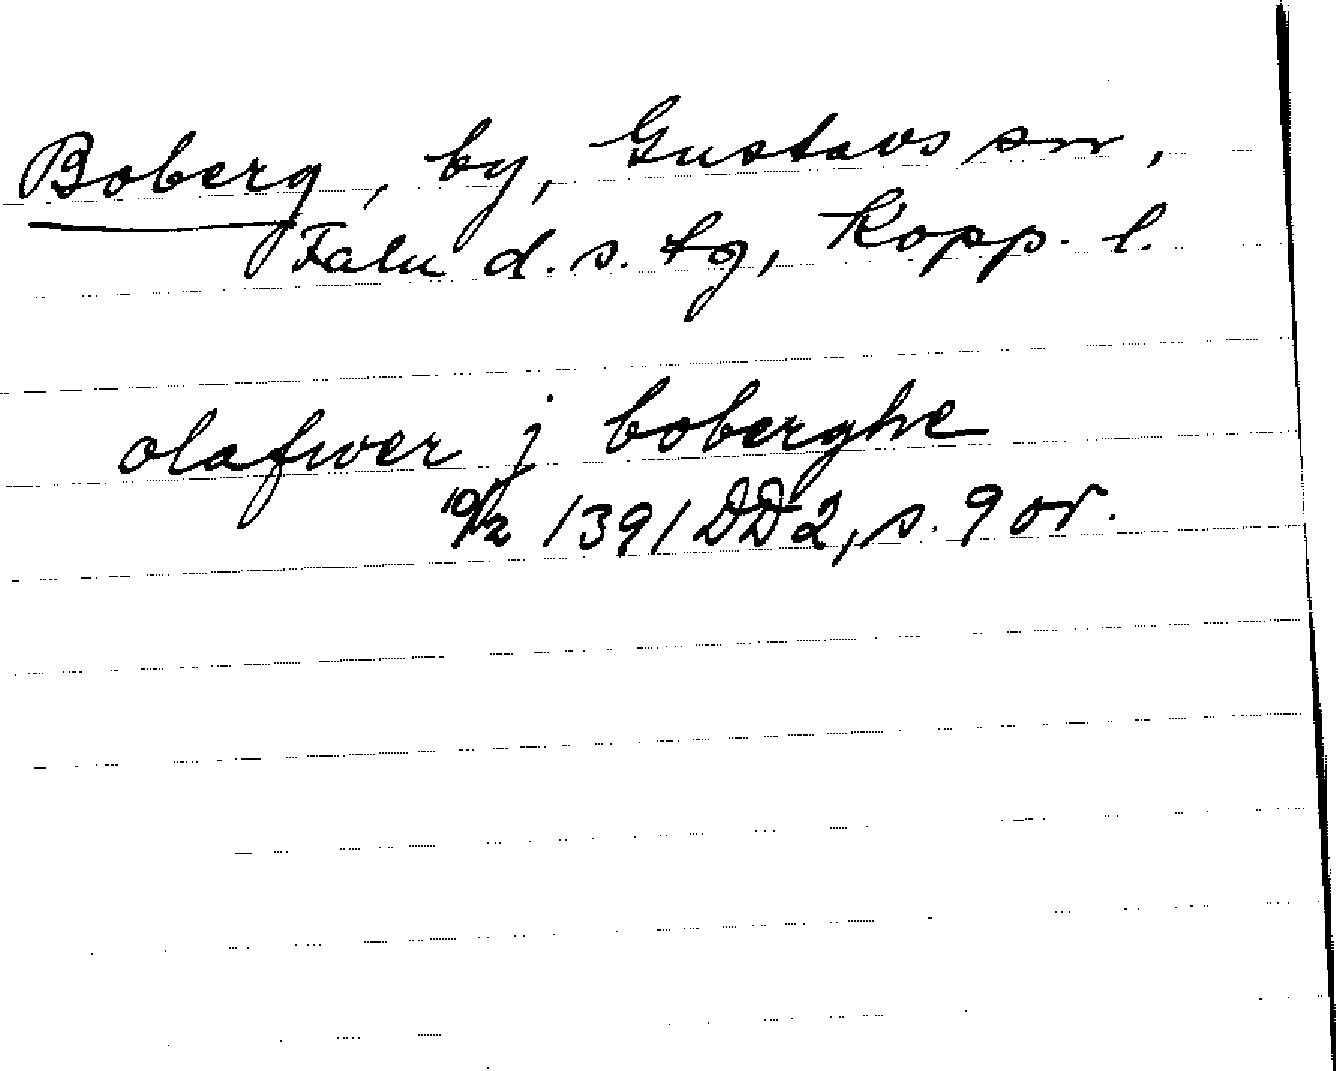 Boberg, by, Gustavs sn,
Falu d. s. tg, Kopp. l.
olafwer j boberghe
10/2 1391 DD2, s. 9 or.